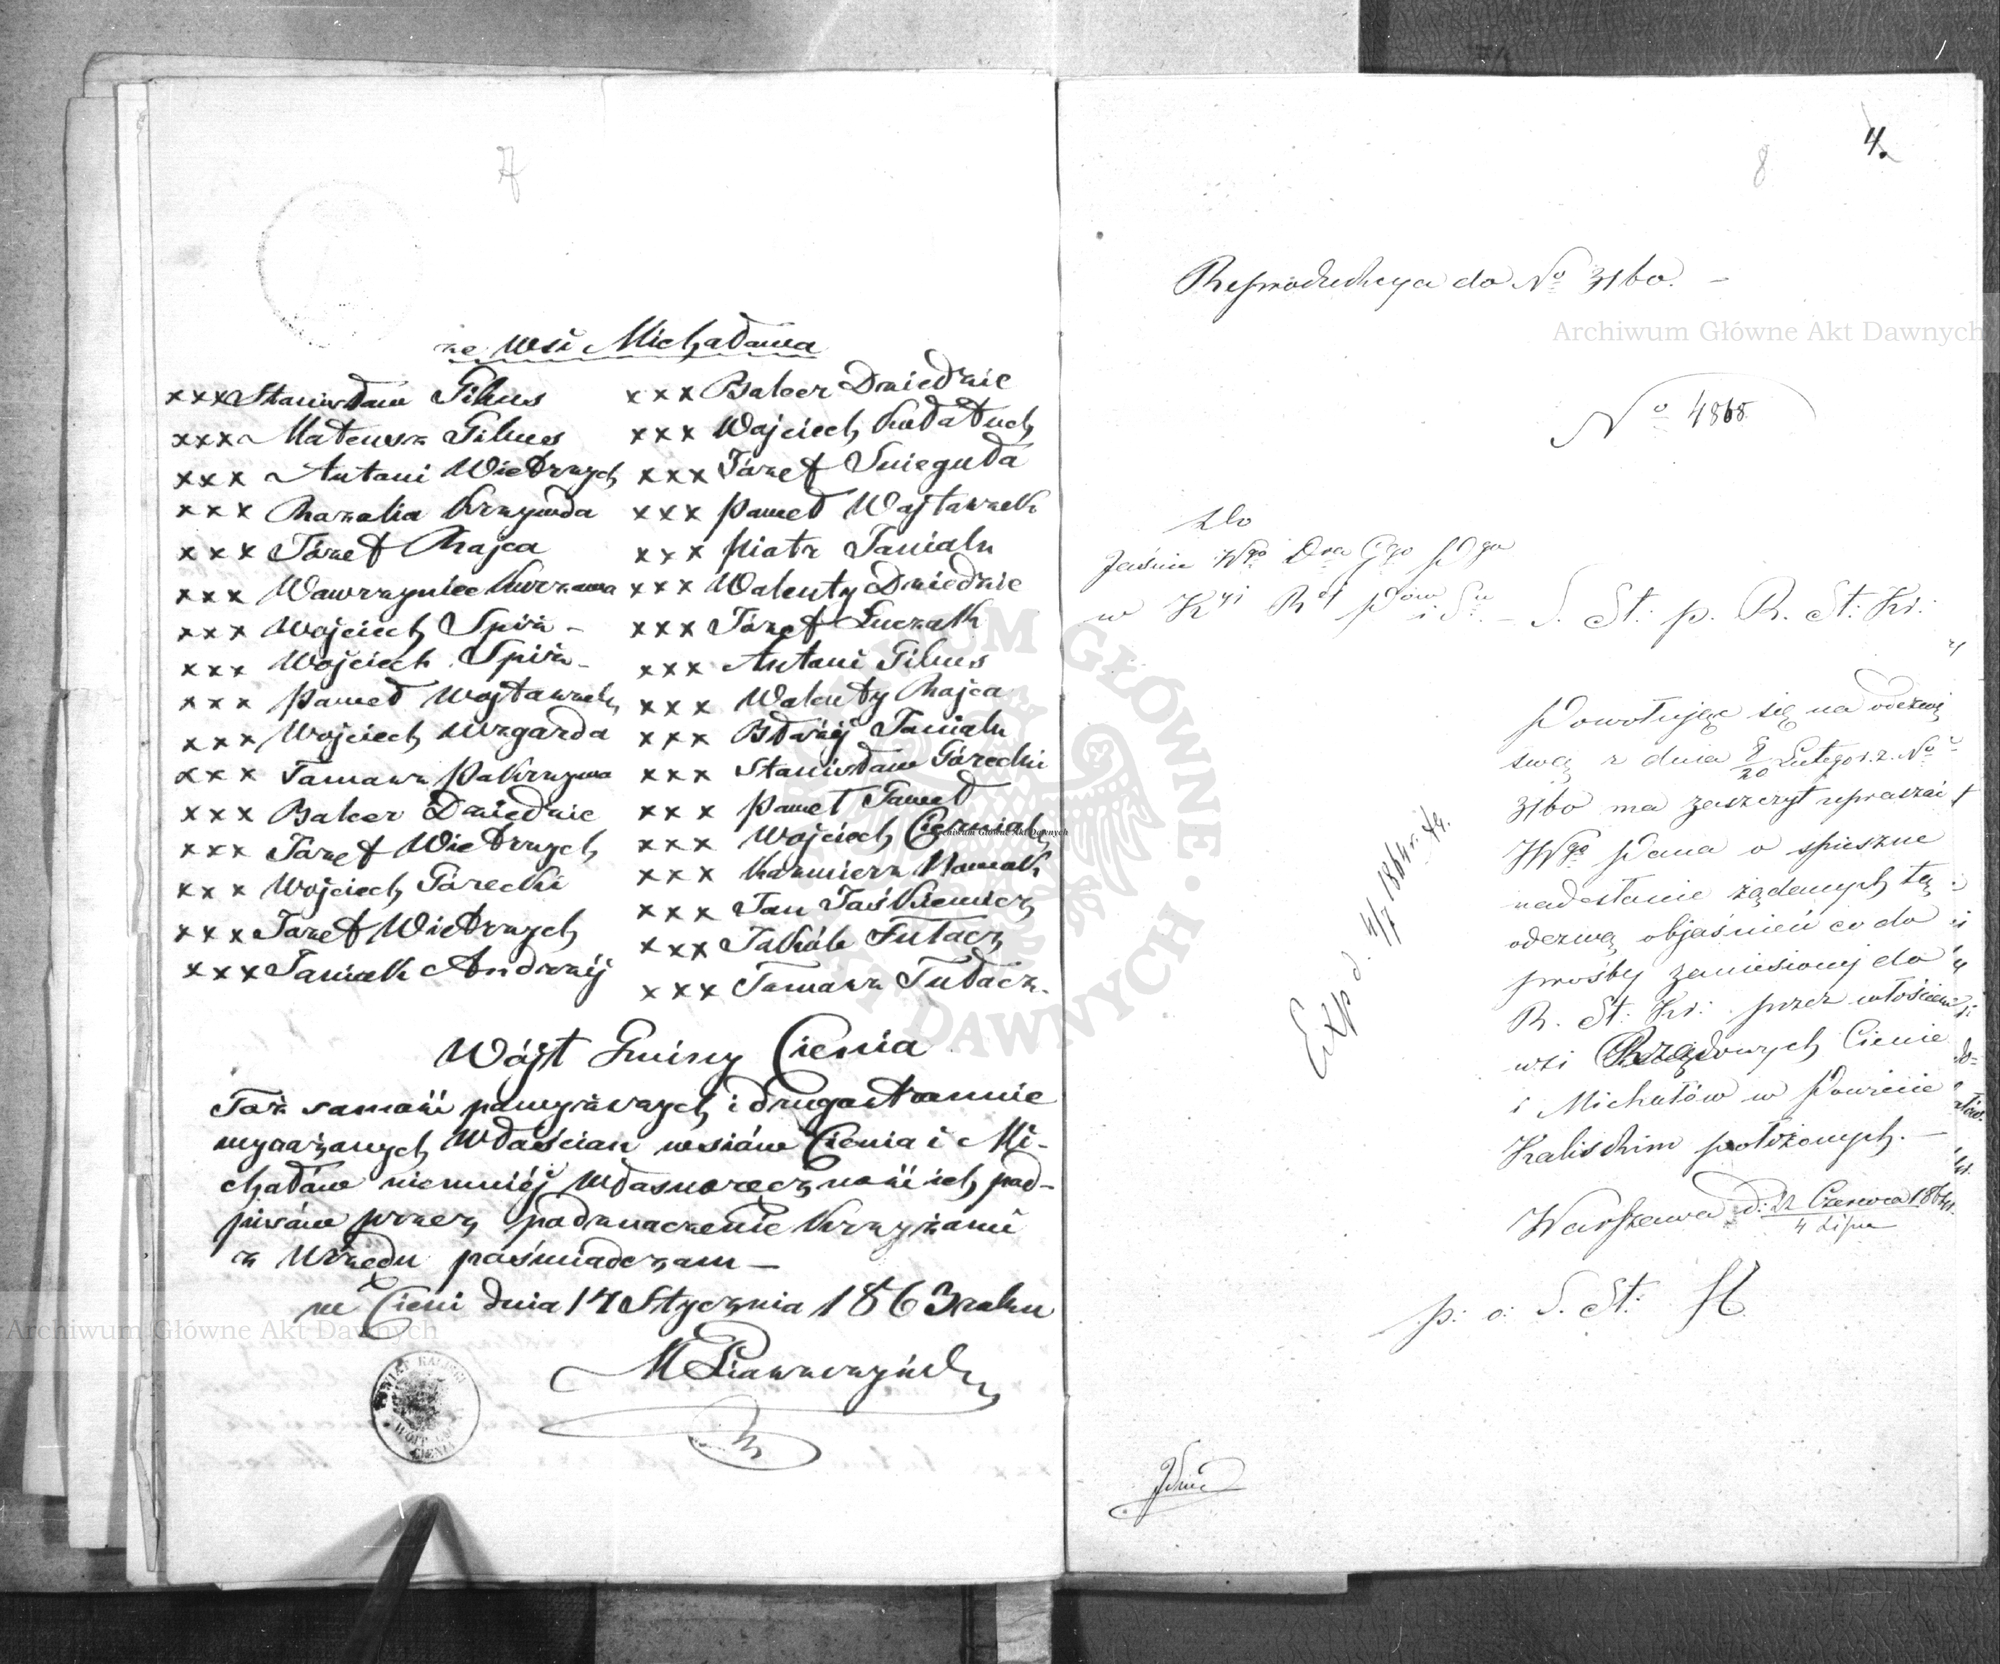 7
ze wsi Michałowa
xxx Stanisław Gibus
xxx Mateusz Gibus
xxx Antoni Wietrzych
xxx Rozalia Krzywda
xxx Józef Majca
xxx Wawrzyniec Kurzawa
xxx Wojciech Spiż
xxx Wojciech Spiż
xxx Paweł Wojtaszek
xxx Wojciech Mizgarda
xxx Tomasz Pokrzywa
xxx Balcer Dziedzic
xxx Józef Wietrzych
xxx Wojciech Górecki
xxx Józef Wietrzych
xxx Taniak Andrzéj
xxx Balcer Dziedzic
xxx Wojciech Kołatuch
xxx Józef Snieguła
xxx Paweł Wojtaszek
xxx Piotr Taniak
xxx Walenty Dziedzic
xxx Józef Łuczak
xxx Antoni Gibus
xxx Walenty Majca
xxx Błażéj Taniak
xxx Stanisław Górecki
xxx Paweł Gaweł
xxx Wojciech Cierniak
xxx Kazmierz Nowak
xxx Jan Jaśkiewicz
xxx Jakób Tułacz
xxx Tomasz Tułacz
Wójt Gminy Cienia
Toż samość powyższych i drugostronnie
wyrażonych Włościan wsiów Cienia i Mi-
chałów niemniéj własnoręczność ich pod-
pisów przez podznaczenie Krzyżami
z Urzędu poświadczam —
w Cieni dnia 17 Stycznia 1863 roku
POWIAT KALISKI
WÓJT GMINY
CIENIA
8
4.
Reprodukcya do No 3160. –
No 4868
Do
Jaśnie Wgo Dra Ggo Pgo
w Kyi Rj Pdów i Su – S. St: p. R. St: Kr:
Powołując się na odezwę
swą z dnia 8/20 Lutego r. z. No
3160 ma zaszczyt upraszać
JWgo Pana o spieszne
nadesłanie żądanych tą
odezwą objaśnień co do
prośby zaniesionéj do
R. St: Kr: przez włościan
wsi Rządowych Cienie
i Michałów w Powiecie
Kaliskim położonych. —
Warszawa d: 22 Czerwca/4 Lipca 1864 r.
p: o: S. St:
Exp d. 4/7 1864 r.
Archiwum Główne Akt Dawnych
Archiwum Główne Akt Dawnych
Archiwum Główne Akt Dawnych
ARCHIWUM GŁÓWNE AKT DAWNYCH